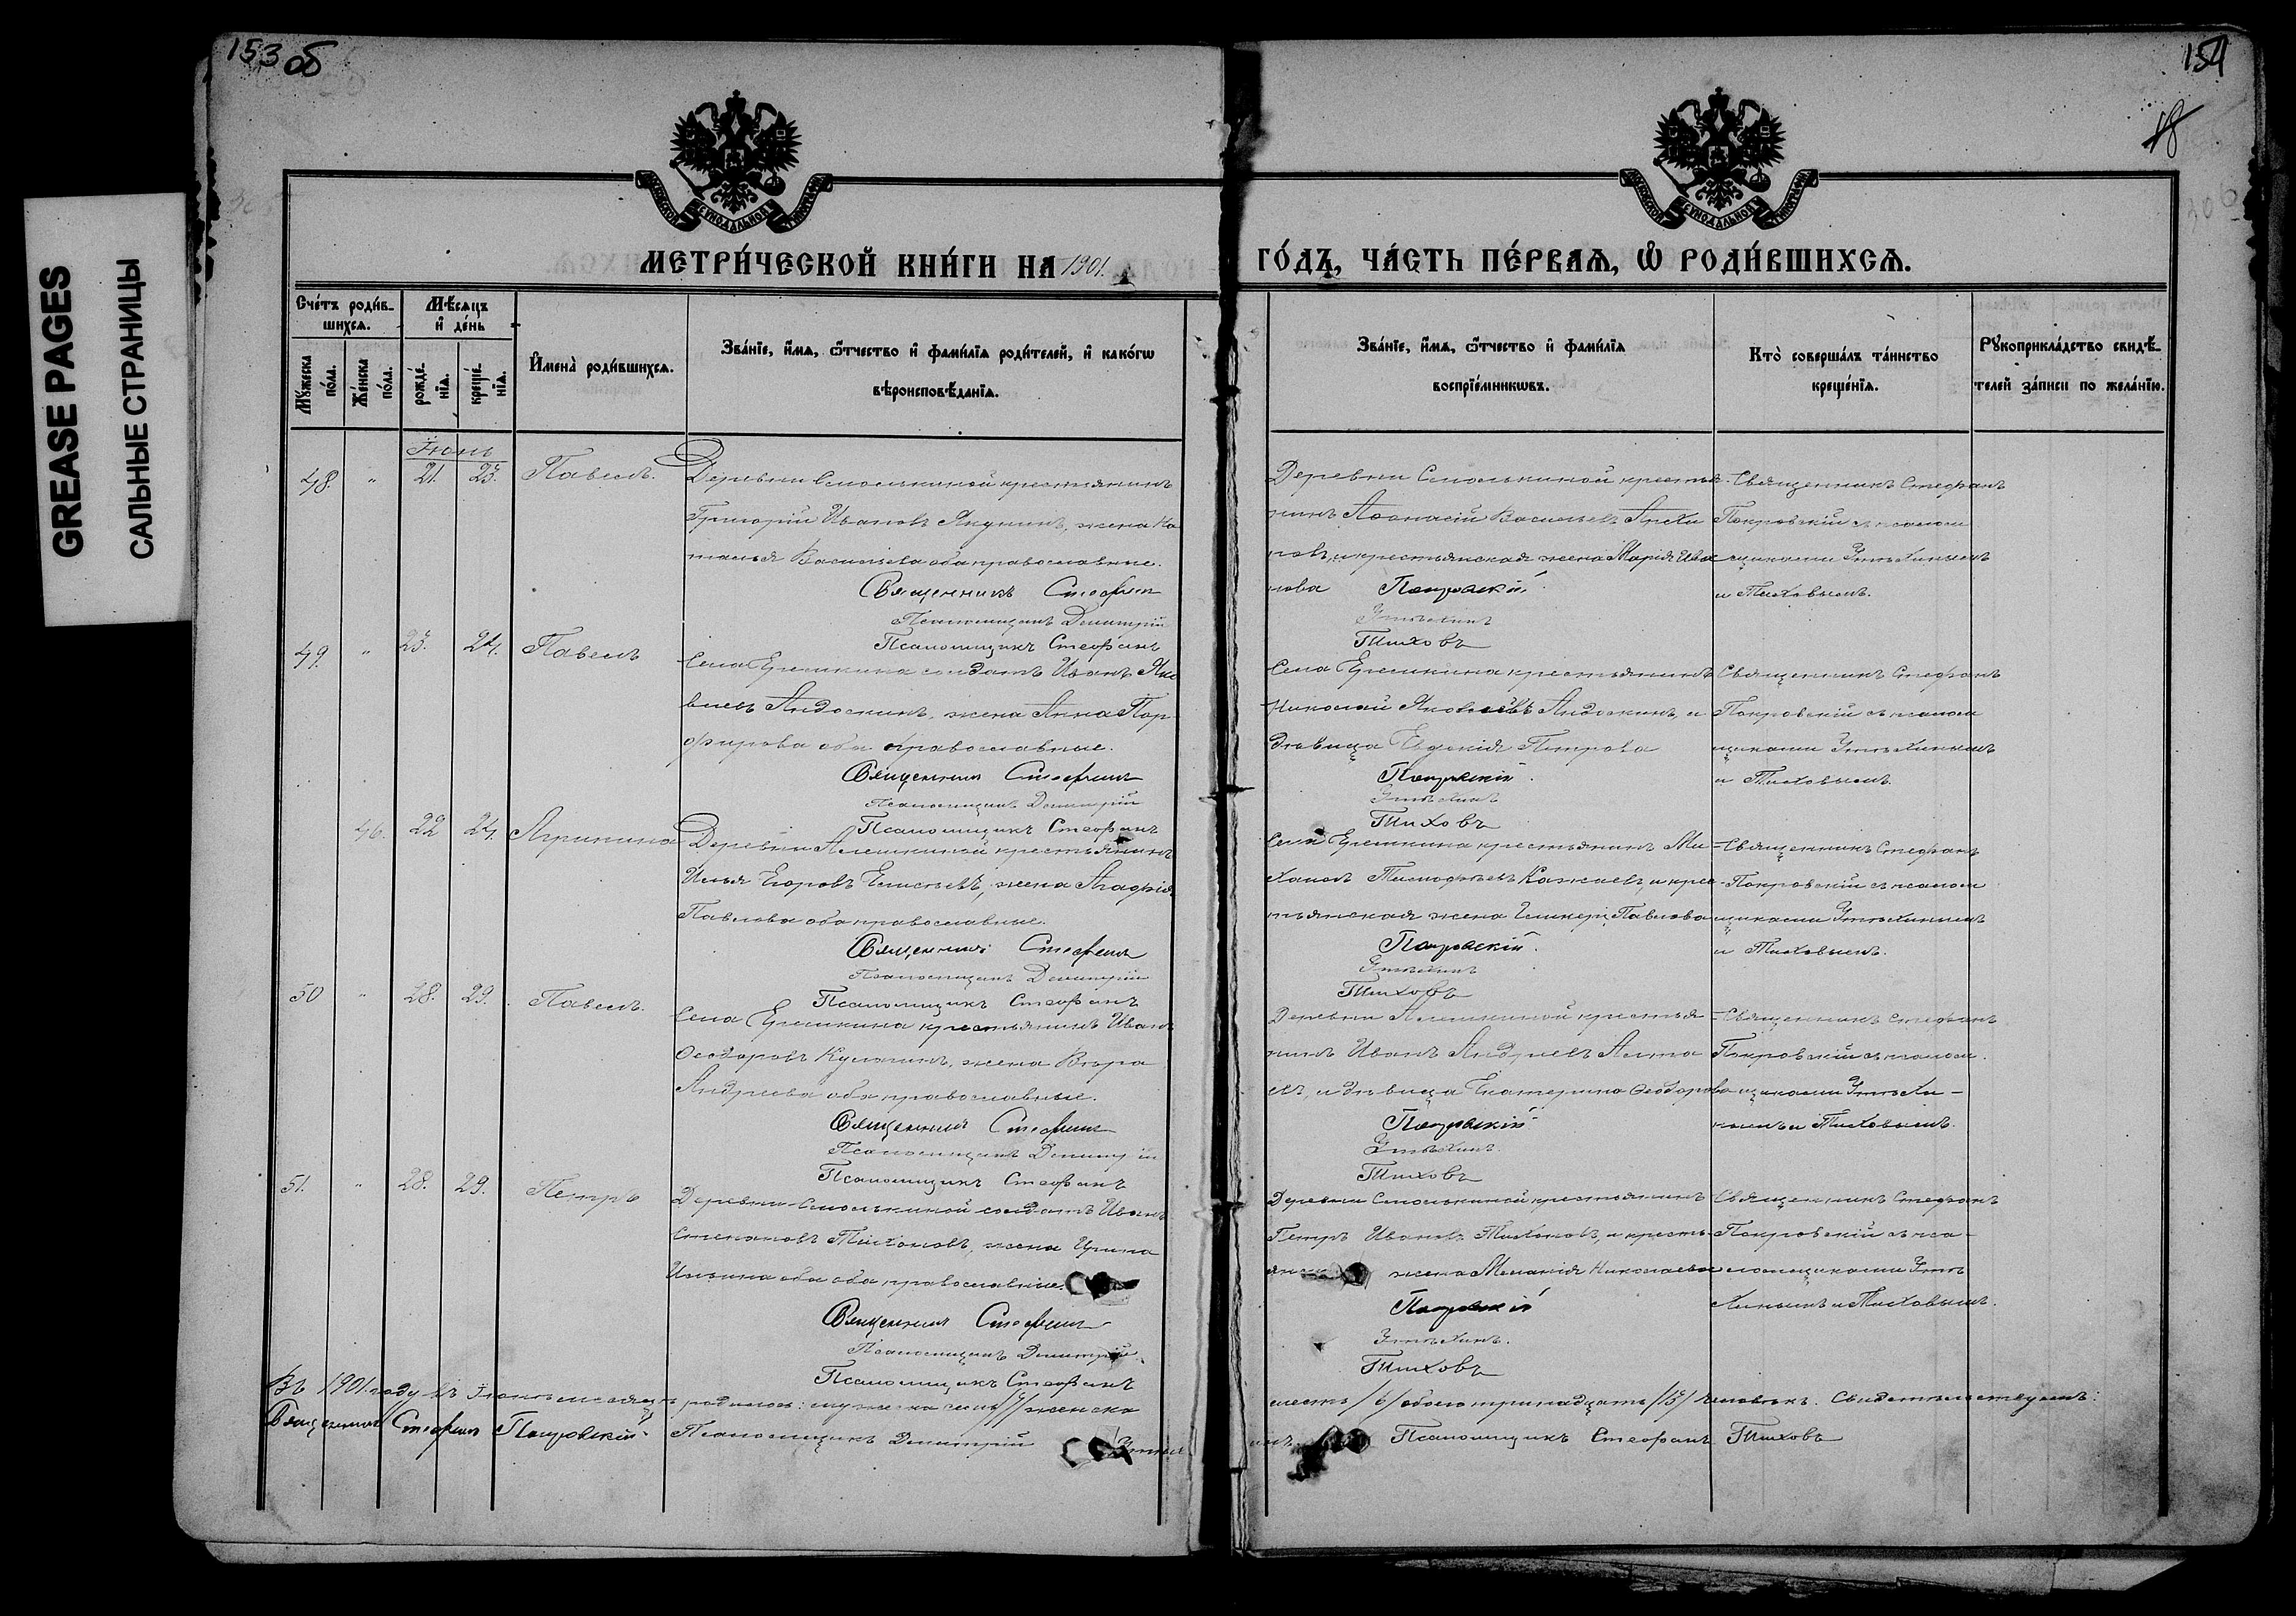 153 об
154
18
GREASE PAGES
САЛЬНЫЕ СТРАНИЦЫ
МЕТРИ́ЧЕСКОЙ КНИ́ГИ НА 1901.
ГО́ДЪ, ЧА́СТЬ ПЕ́РВАѦ, Ѿ РОДИ́ВШИХСѦ.
Сче́тъ роди́в-
шихсѧ.
Мѣ́сѧцъ
и҆ де́нь
Мꙋ́жеска по́ла.
Же́нска по́ла.
рожде́нїѧ.
креще́нїѧ.
И҆мена̀ роди́вшихсѧ.
Зва́нїе, и҆́мѧ, ѻ҆́тчество и҆ фами́лїѧ роди́телей, и҆ како́гѡ
вѣроисповѣ́данїѧ.
Зва́нїе, и҆́мѧ, ѻ҆́тчество и҆ фами́лїѧ
воспрїе́мникѡвъ.
Кто̀ соверша́лъ та́инство
креще́нїѧ.
Рꙋкоприкла́дство свидѣ́-
телей за́писи по жела́нїю.
Іюнь
48. " 21. 23. Павелъ.
Деревни Смолькиной крестьянинъ
Григорій Ивановъ Якунинъ, жена На
талья Васильева оба православные.
Священникъ Стефанъ
Псаломщикъ Димитрій
Псаломщикъ Стефанъ
Деревни Смолькиной крестья-
нинъ Аѳанасій Васильевъ Архи
повъ, и крестьянская жена Марія Ива
нова Покровскій
Утѣхинъ
Тиховъ
Священникъ Стефанъ
Покровскій съ псалом
щиками Утѣхинымъ
и Тиховымъ.
49. " 23. 24. Павелъ
Села Еремкина солдатъ Иванъ Яко
влевъ Андоскинъ, жена Анна Пор
фирова оба православные.
Священникъ Стефанъ
Псаломщикъ Димитрій
Псаломщикъ Стефанъ
Села Еремкина крестьянинъ
Николай Яковлевъ Андоскинъ, и
дѣвица Евдокія Петрова
Покровскій.
Утѣхинъ
Тиховъ
Священникъ Стефанъ
Покровскій съ псалом
щиками Утѣхинымъ
и Тиховымъ.
46. 22 24. Агрипина
Деревни Алешкиной крестьянинъ
Илья Егоровъ Елисѣевъ, жена Агафія
Павлова оба православные.
Священникъ Стефанъ
Псаломщикъ Димитрій
Псаломщикъ Стефанъ
Села Еремкина крестьянинъ Ми
хаилъ Тимофѣевъ Кажаевъ, и крес
тьянская жена Гликерія Павлова
Покровскій.
Утѣхинъ
Тиховъ
Священникъ Стефанъ
Покровскій съ псалом
щиками Утѣхинымъ
и Тиховымъ.
50 " 28. 29. Павелъ.
Села Еремкина крестьянинъ Иванъ
Ѳеодоровъ Кулагинъ, жена Вѣра
Андреева оба православные.
Священникъ Стефанъ
Псаломщикъ Димитрій
Псаломщикъ Стефанъ
Деревни Алешкиной крестья
нинъ Иванъ Андреевъ
и дѣвица Екатерина Ѳеодорова
Покровскій
Утѣхинъ.
Тиховъ
Священникъ Стефанъ
Покровскій съ псалом.
щиками Утѣхи-
нымъ и Тиховымъ.
51. " 28. 29. Петръ
Деревни Смолькиной солдатъ Иванъ
Степановъ Тихоновъ, жена Ирина
Ильина оба оба православные.
Священникъ Стефанъ
Псаломщикъ Димитрій
Псаломщикъ Стефанъ
Деревни Смолькиной крестьянинъ
Петръ Ивановъ Тихоновъ, и кресть
янск жена Меланія Николаева
Покровскій
Утѣхинъ.
Тиховъ
Священникъ Стефанъ
Покровскій съ пса-
ломщиками Утѣ
хинымъ и Тиховымъ.
Въ 1901 году въ Іюнѣ мѣсяцѣ родилось: мужеска семь /7/ женска шесть /6/ обоего тринадцать /13/ человѣкъ. Свидѣтельствуемъ:
Священникъ Стефанъ Покровскій Псаломщикъ Димитрій Утѣхинъ Псаломщикъ Стефанъ Тиховъ